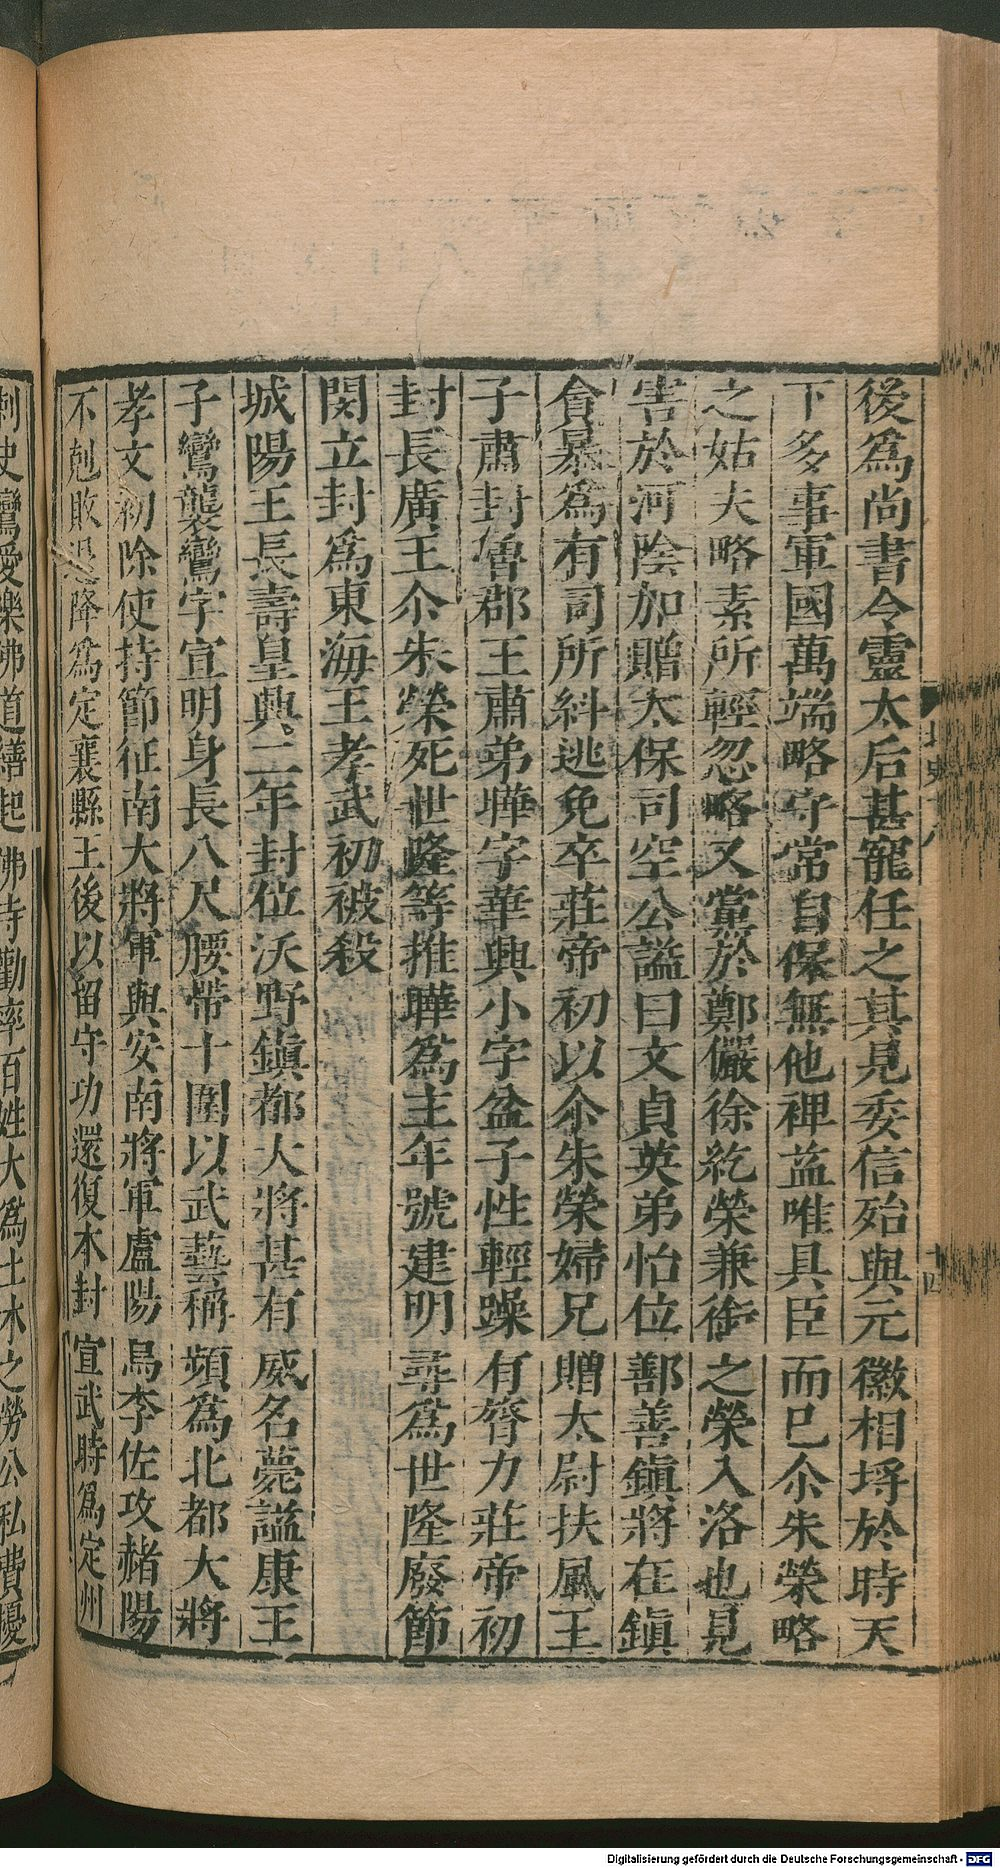 後爲尚書令靈太后甚寵任之其見委信殆與元徽相埓於時天
下多事軍國萬端略守常自保無他裨益唯具臣而已尒朱榮略
之姑夫略素所輕忽略又黨於鄭儼徐紇榮兼銜之榮入洛也見
害於河陰加贈太保司空公謚曰文貞英弟怡位鄯善鎮將在鎮
貪暴爲有司所糾逃免卒莊帝初以尒朱榮婦兄贈太尉扶風王
子肅封魯郡王肅弟曄字華興小字盆子性輕躁有膂力莊帝初
封長廣王尒朱榮死世隆等推曄爲主年號建明尋爲世隆廢節
閔立封爲東海王孝武初被殺
城陽王長壽皇興二年封位沃野鎮都大將甚有威名薨謚康王
子鸞襲鸞字宣明身長八尺腰帶十圍以武藝稱頻爲北都大將
孝文初除使持節征南大將軍與安南將軍盧陽烏李佐攻赭陽
不剋敗退降爲定襄縣王後以留守功還復本封宣武時爲定州
刺史鸞愛樂佛道繕起佛寺勸率百姓大爲土木之勞公私費擾
北史十八
十四
Digitalisierung gefördert durch die Deutsche Forschungsgemeinschaft - DFG